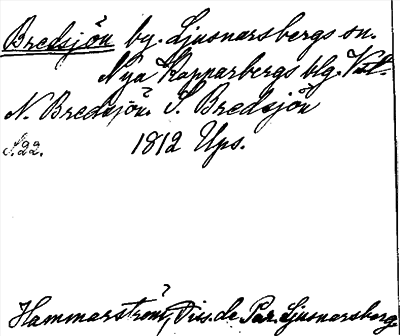 Bredsjön by. Ljusnarsbergs sn.
Nya Kopparbergs blg. Väst-
N. Bredsjön. S. Bredsjön
s.22. 1812 Ups.
Hammarström, Diss. de Par. Ljusnarsberg